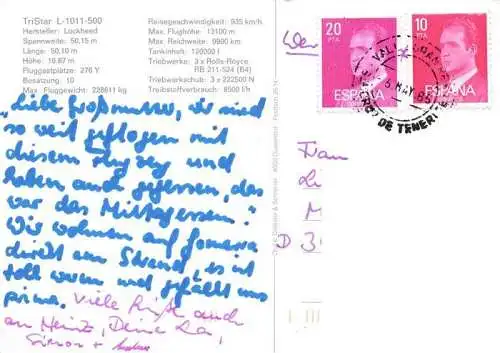 TriStar L-1011-500
Hersteller: Lockheed
Spannweite: 50,15 m
Länge: 50,10 m
Höhe: 16,87 m
Fluggastplätze: 276 Y
Besatzung: 10
Max. Fluggewicht: 228611 kg
Reisegeschwindigkeit: 935 km/h
Max. Flughöhe: 13100 m
Max. Reichweite: 9900 km
Tankinhalt: 120000 l
Triebwerke: 3 x Rolls-Royce
RB 211-524 (B4)
Triebwerkschub: 3 x 222500 N
Treibstoffverbrauch: 8500 l/h
Liebe Großmutter, wir sind
so weit geflogen mit
diesem Flugzeug und
haben auch gegessen, das
war das Mittagessen.
Wir wohnen auf Gomera
direkt am Strand, es ist
toll warm und gefällt uns
prima. Viele Grüße auch
an Heinz, Deine
Simon +
20
PTA
ESPAÑA
10
PTA
ESPAÑA
MAY 85
DE TENERIFE
Frau
L
M
D 3